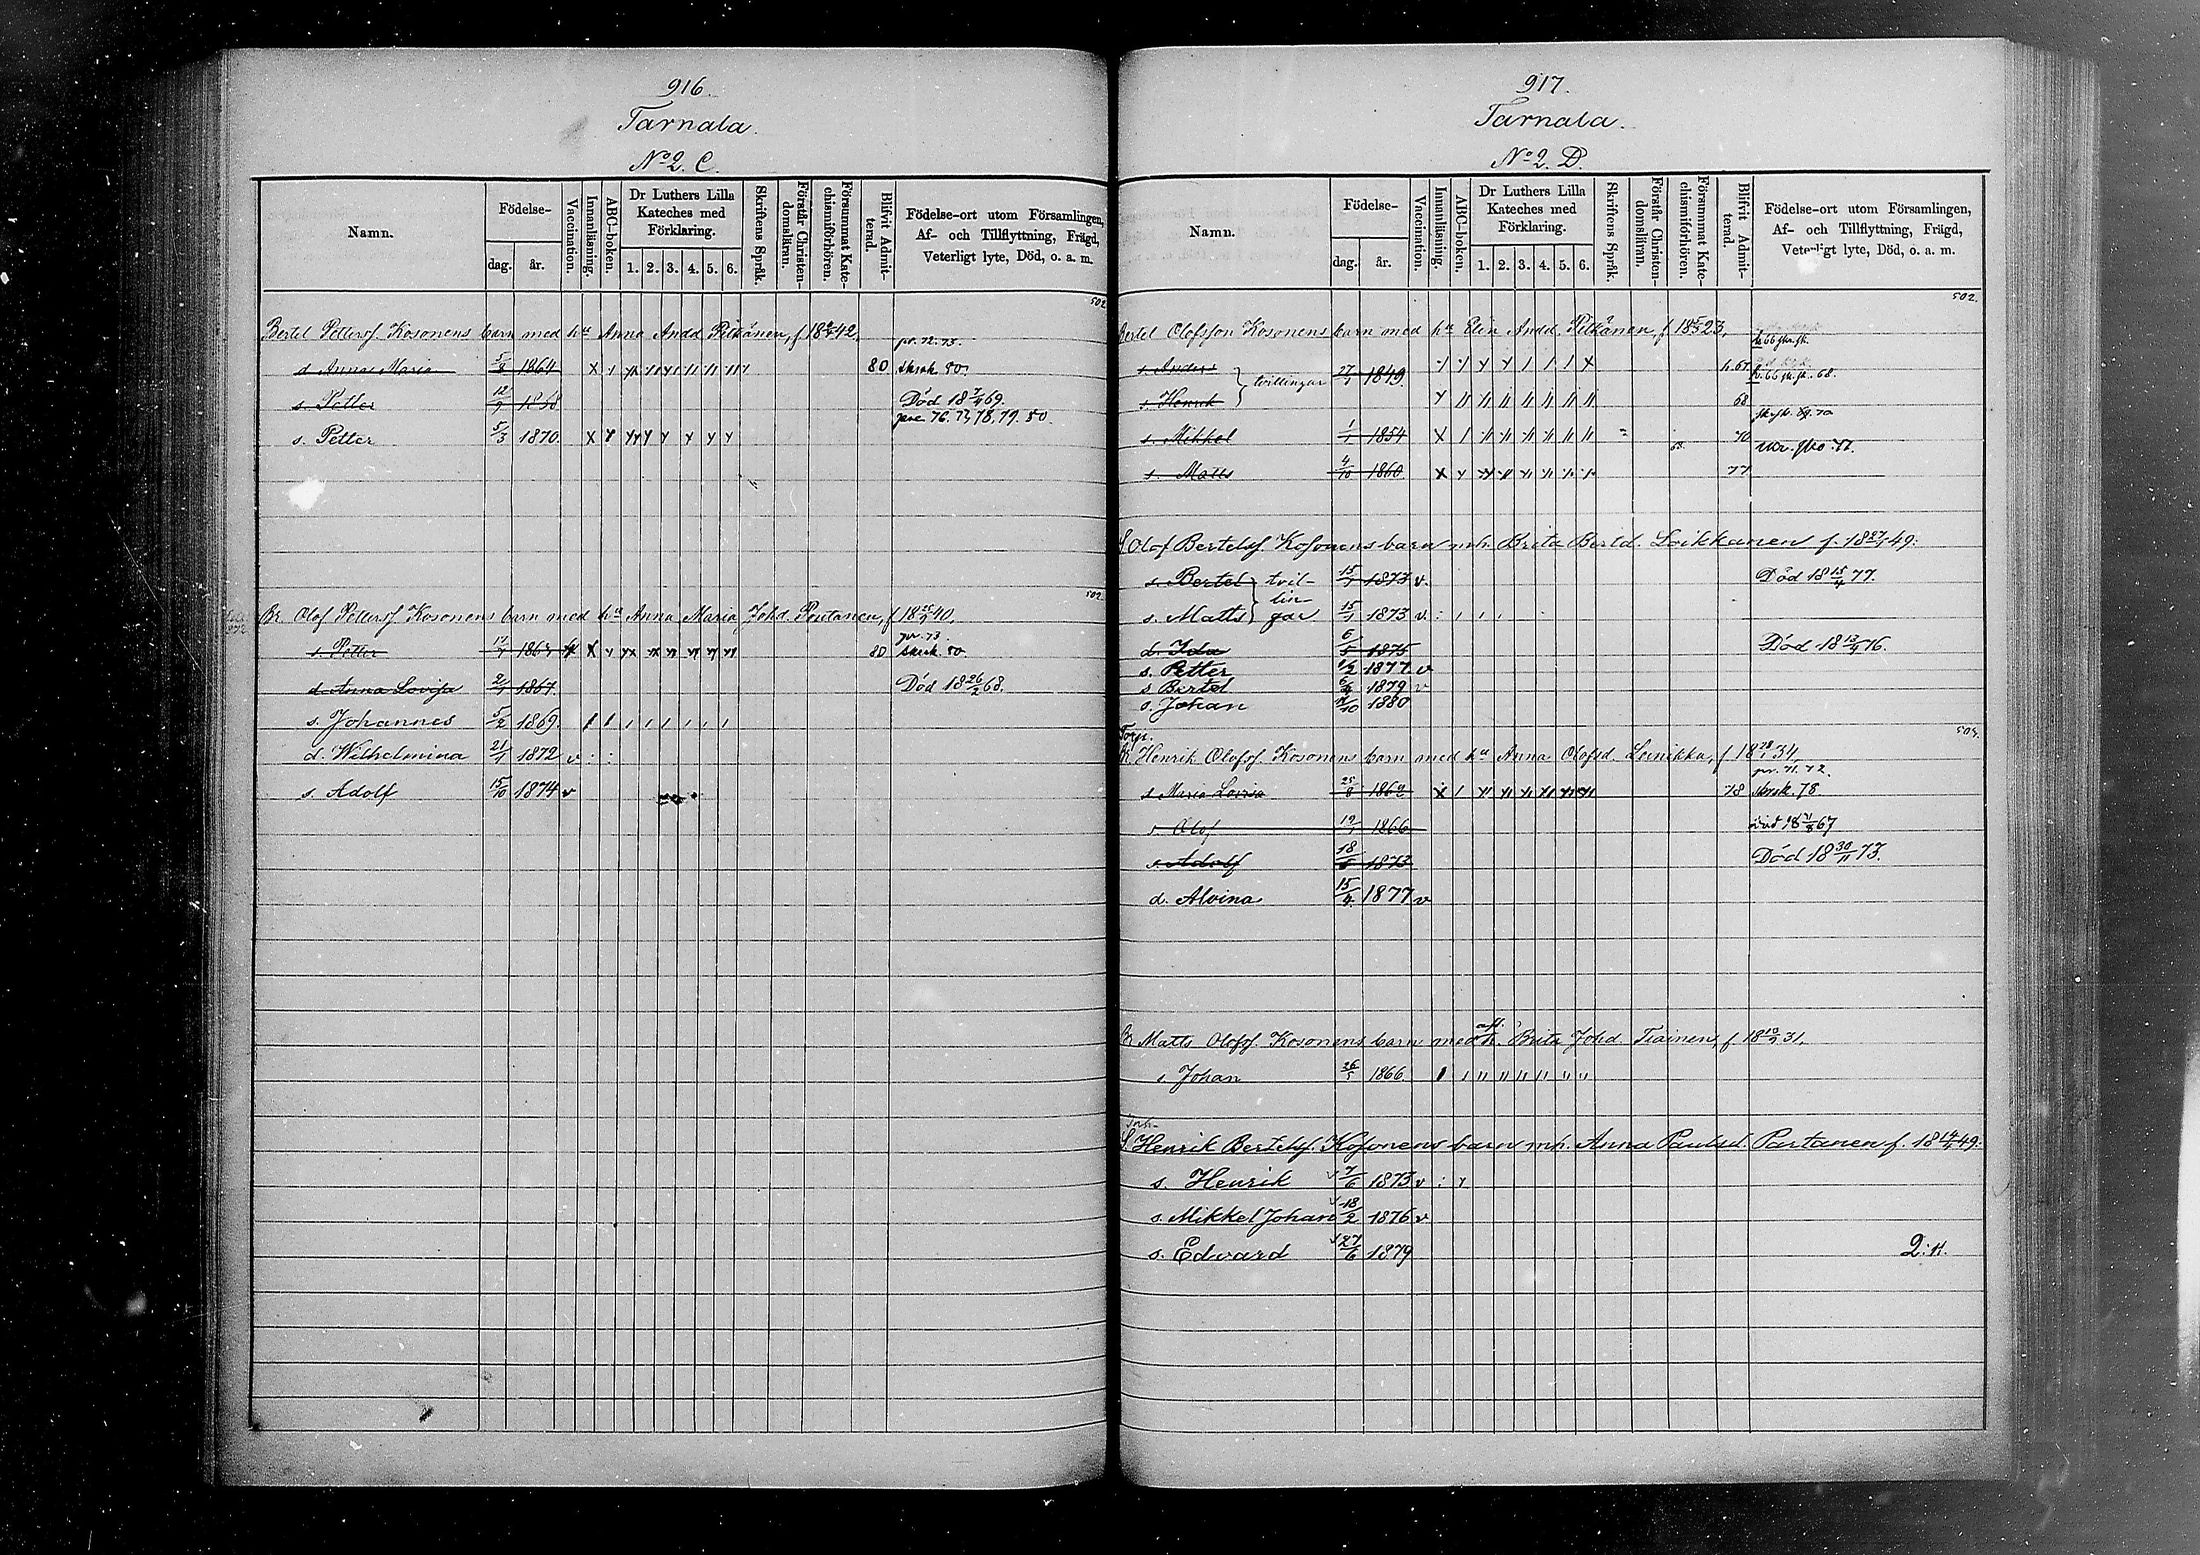 916.
Tarnala.
No 2. C.
Namn.
Födelse-
dag. år.
Vaccination.
Innanläsning.
ABC-boken.
Dr Luthers Lilla Kateches med Förklaring.
1. 2. 3. 4. 5. 6.
Skriftens Språk.
Förstår Christen-domsläran.
Försummat Kate-chismiförhören.
Blifvit Admit-terad.
Födelse-ort utom Församlingen,
Af- och Tillflyttning, Frägd,
Veterligt lyte, Död, o. a. m.
502
Bertel Pettersf Kosonens barn med hu Anna Andd Pitkänen, f. 42.
d Anna Maria 5/8 1864 80
s. Petter 12/7 1868 Död 18 7/4 69.
s. Petter 5/3 1870. 76. 77, 78, 79. 80.
502.
Br. Olof Pettersf Kosonens barn med hu Anna Maria Johd. 40.
s. Petter 80
d. Anna Lovisa 1867 Död 18 26/2 68.
s. Johannes 5/2 1869.
d. Wilhelmina 21/1 1872 v
s. Adolf 15/10 1874 v
917.
Tarnala.
No 2. D.
Namn.
Födelse-
dag. år.
Vaccination.
Innanläsning.
ABC-boken.
Dr Luthers Lilla Kateches med Förklaring.
1. 2. 3. 4. 5. 6.
Skriftens Språk.
Förstår Christen-domsläran.
Försummat Kate-chismiförhören.
Blifvit Admit-terad.
Födelse-ort utom Församlingen,
Af- och Tillflyttning, Frägd,
Veterligt lyte, Död, o. a. m.
502.
Bertel Olofsson Kosonens barn med hu Elin Andd Pitkänen, f 23,
s. Anders tvillingar 27/1 1849.
s. Henrik 68
s. Mikkel 1/1 1854 70
s. Matts 4/10 1860 77
S Olof Bertelsf. Kosonens barn mh. Brita Bertd. Loikkanen f. 18 27/1 49.
s. Bertel tvil- 15/1 1873 v. Död 18 15/4 77.
lin-
s. Matts gar 15/1 1873 v.
d. Ida 6/5 1875 Död 18 13/4 76.
s. Petter 1877 v
s. Bertel 1879 v
s. Johan 1880
Torp.
Br Henrik Olofsf. Kosonens barn med hu Anna Olofsd. Leinikka, f 18 28/1 34,
Maria Lovisa 78
s Olof 19/1 1866 Död 67
s. Adolf 1873 Död 18 30/11 73.
d. Alvina 15/4 1877 v
Br Matts Olofsf. Kosonens barn med afl. h. Brita Johd. Tiainen, f 31,
s Johan 26/5 1866.
Inh.
S Henrik Bertelsf. Kosonens barn mh. Anna Paulsd. Partanen f. 49.
s. Henrik 7/6 1873 v
s. Mikkel Johan 18/2 1876 v
s. Edward 27/6 1879